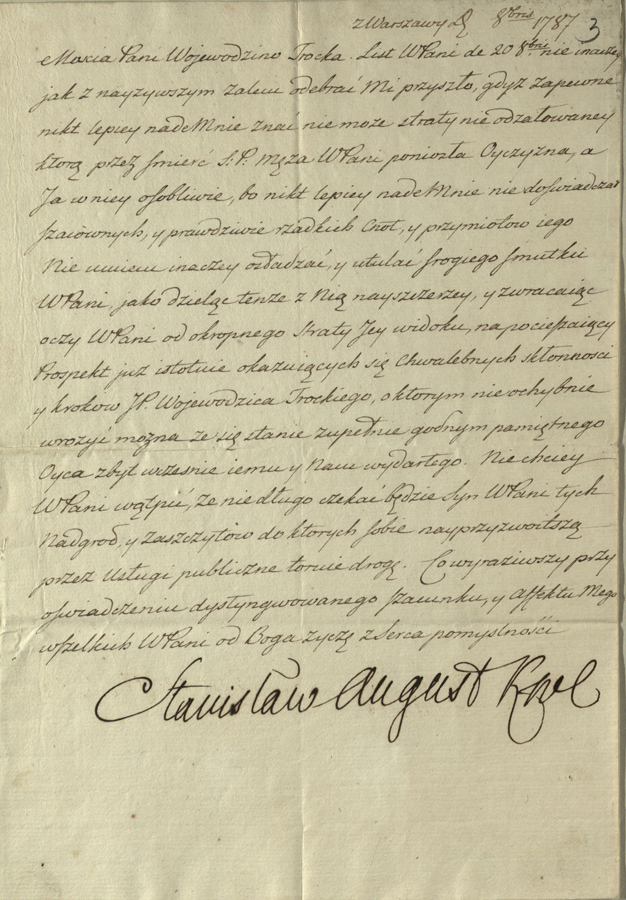 z Warszawy D. 8bris 1787 3
Moscia Pani Woiewodzino Trocka. List WPani de 20 8bris nie inaczey
jak z nayzywszym zalem odebrać Mi przyszło, gdyz zapewne
nikt lepiey nade Mnie znać nie może straty nie odzałowaney
ktorą przez śmierć S: P. Męza WPani poniosła Oyczyzna, a
Ja w niey osobliwie, bo nikt lepiey nade Mnie nie doświadczał
szacownych, y prawdziwie rzadkich Cnot, y przymiotow iego
Nie umiem inaczey osładzać, y utulać srogiego smutku
WPani, jako dzieląc tenze z Nią nayszczerzey, y zwracaiąc
oczy WPani od okropnego straty Jey widoku, na pocieszaiący
Prospekt już istotnie okazuiących się Chwalebnych skłonności
y krokow JP. Woiewodzica Trockiego, o ktorym nieochybnie
wrożyć można ze się stanie zupełnie godnym pamiętnego
Oyca zbyt wcześnie iemu y Nam wydartego. Nie chciey
WPani wątpić, że nie długo czekać będzie Syn WPani tych
Nadgrod, y zaszczytów do ktorych sobie nayprzyzwoitszą
przez Usługi publiczne toruie drogę. Co wyraziwszy przy
oswiadczeniu dystyngwowanego szacunku, y Affektu Mego
wszelkich WPani od Boga zyczę z Serca pomyslności
Stanisław August Krol